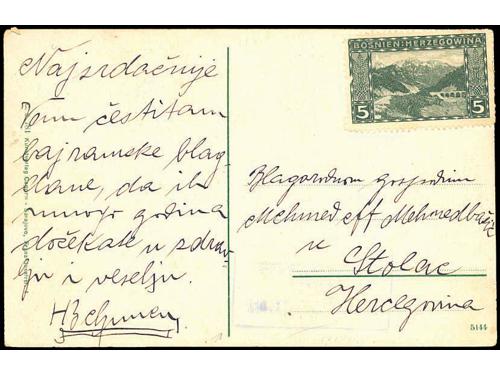 Najsrdačnije
Vam čestitam
bajramske blag-
dane, da ih
mnogo godina
dočekate u zdrav-
lju i veselju.
BOSNIEN-HERZEGOWINA
5 5
Blagorodnom gospodinu
Mehmed eff Mehmedbašić
u
Stolac
Hercegovina
5144